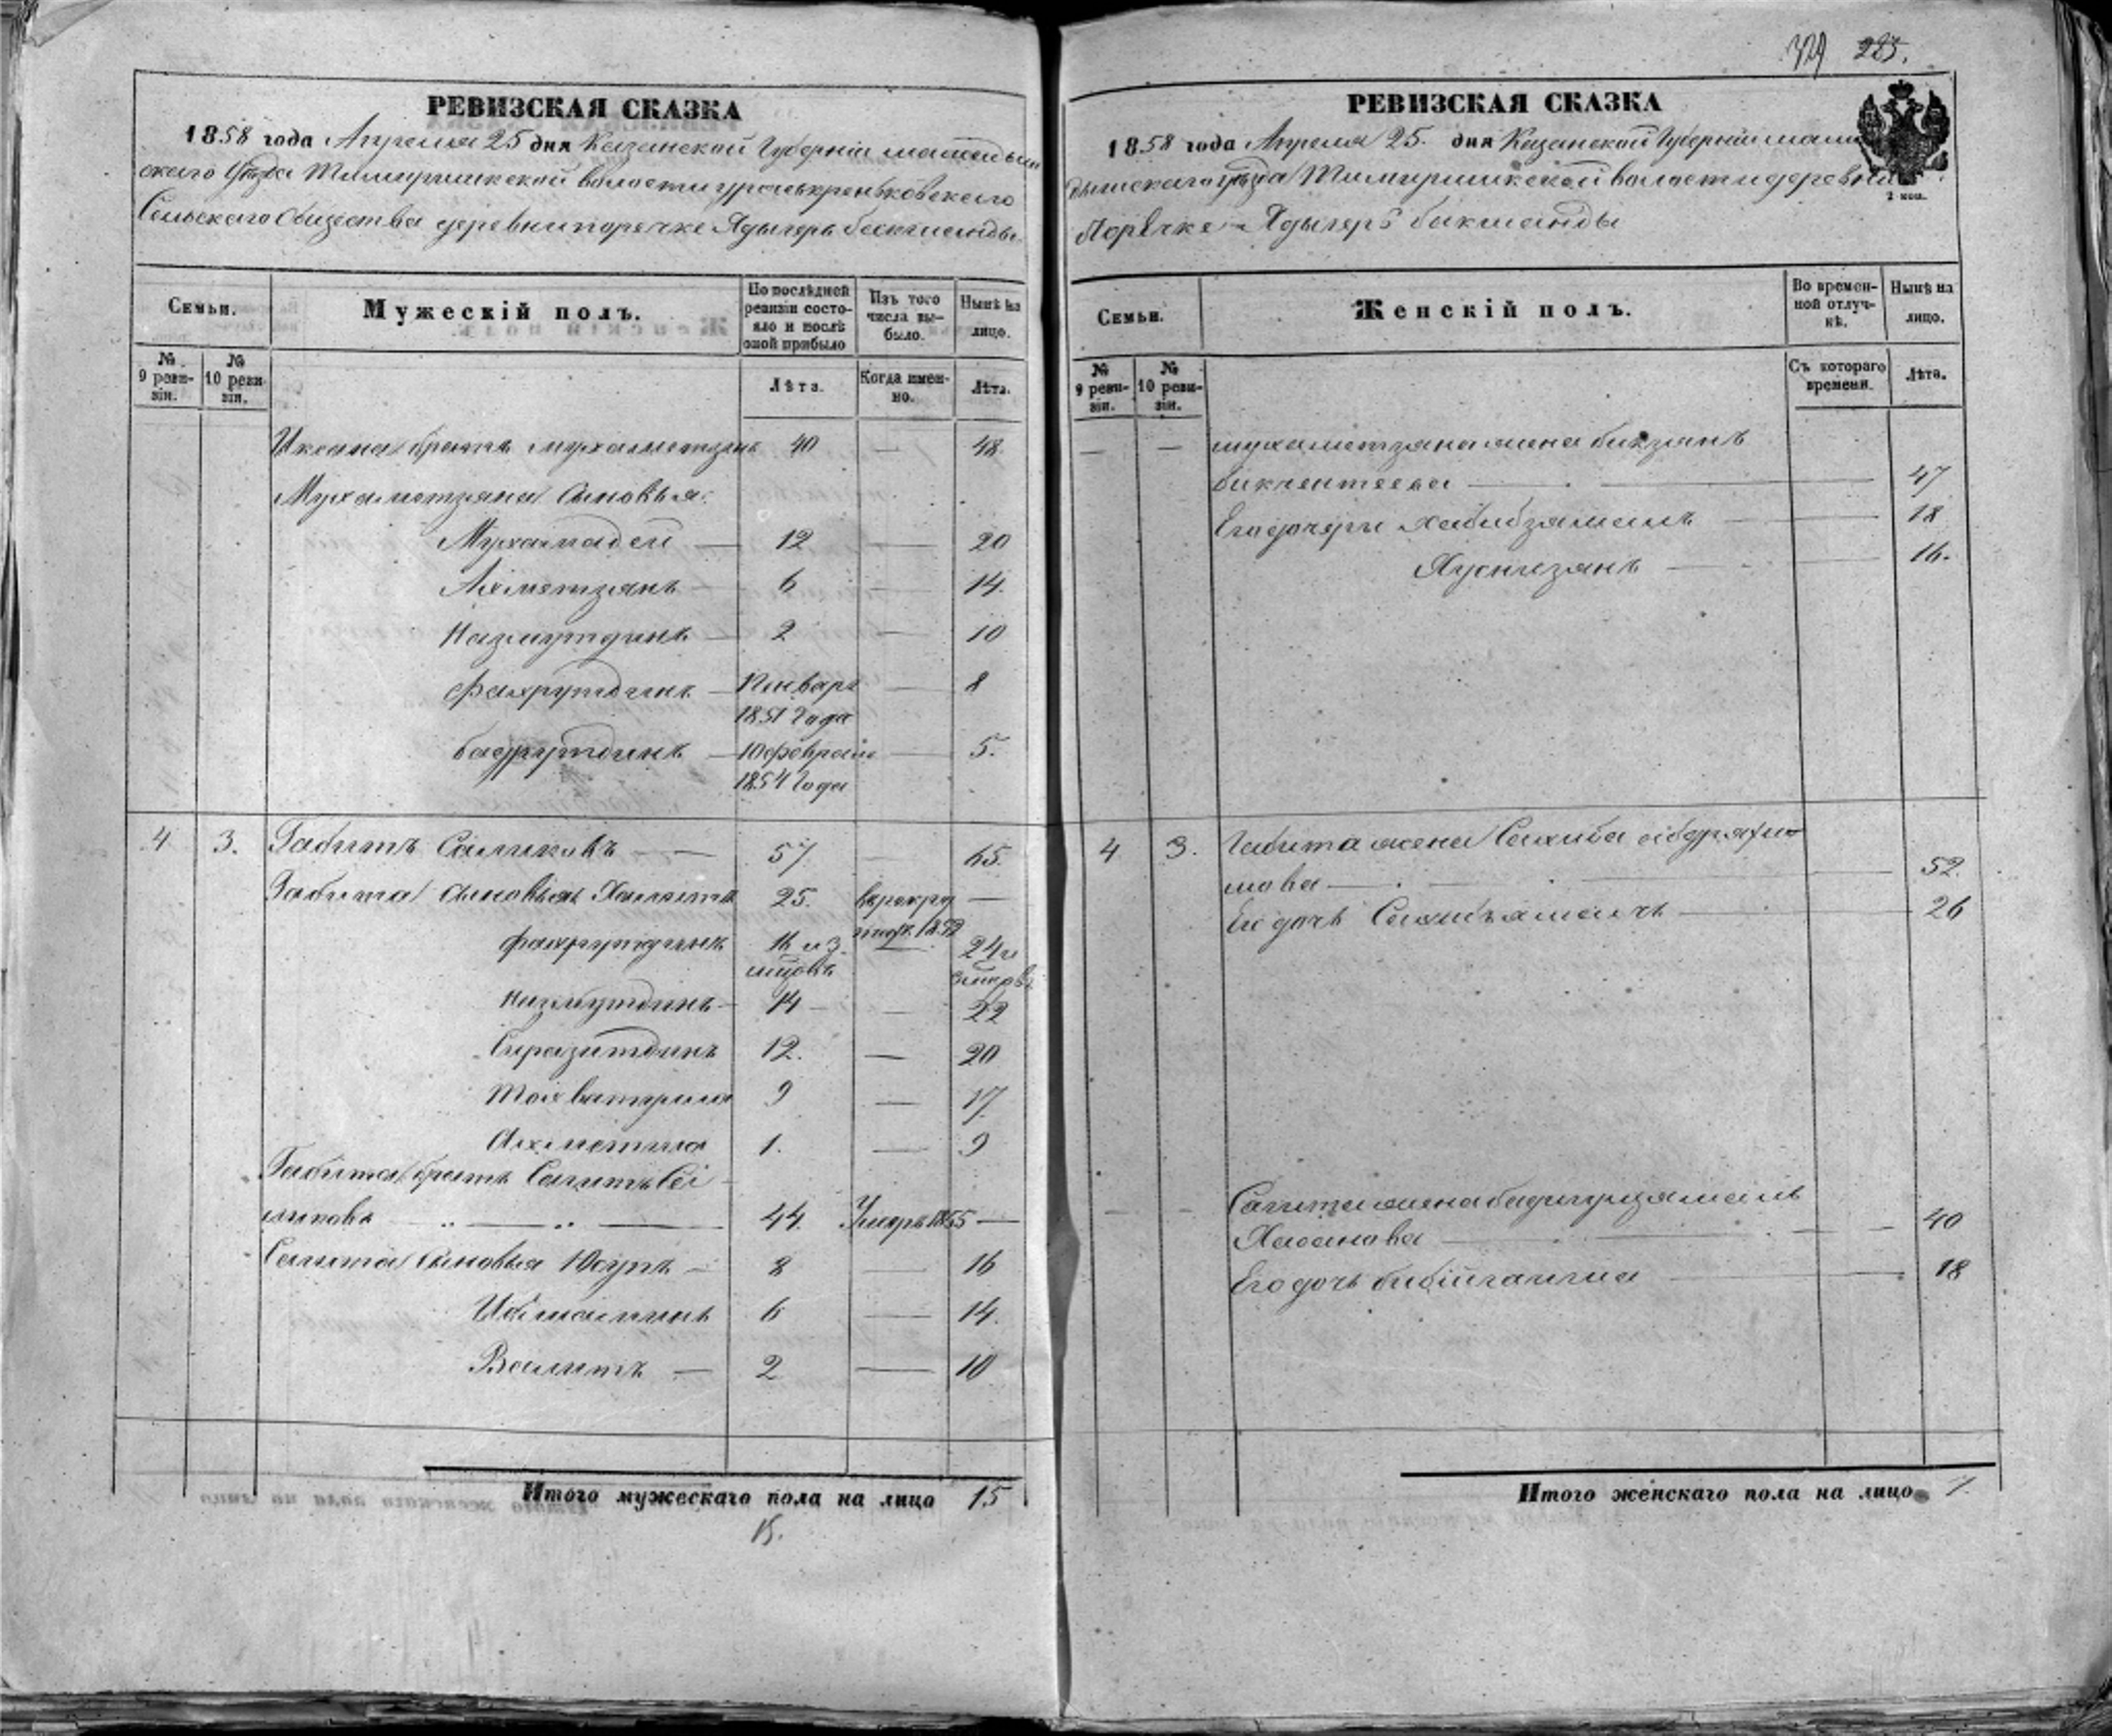 329 285.
РЕВИЗСКАЯ СКАЗКА
1858 года Апреля 25 дня Казанской Губерніи мамадыш
скаго Уѣзда
Сельскаго Общества деревни поречке Ядыгерь бакшанды
Семьи.
Мужескій полъ.
По послѣдней ревизіи состояло и послѣ оной прибыло
Изъ того числа выбыло.
Нынѣ на лицо.
№ 9 ревизіи.
№ 10 ревизіи.
Лѣта.
Когда именно.
Лѣта.
братъ Мухаметзянъ 40 — 48
Мухаметзяна Сыновья:
Мухамадей — 12 — 20
Ахметзянъ — 6 — 14.
Назмутдинъ — 2 — 10
Фахрутдинъ — Январь — 8
1851 Года
бадрутдинъ — 10 февраля — 5.
1854 Года
4 3. Габитъ Саликовъ — 57 — 65.
Габита сыновья Халитъ 25. —
Фахрутдинъ 16 и 3 — 24 и
мцовъ
Назмутдинъ — 14 — 22
Сиразитдинъ 12. — 20
9 — 17
Ахметша 1. — 9
Габита братъ Сагитъ Са
ликовъ — 44. Умеръ 1855 —
Сагита сыновья Юсупъ — 8 — 16
6 — 14.
Валитъ — 2 — 10
Итого мужескаго пола на лицо 15
15.
РЕВИЗСКАЯ СКАЗКА
1858 года Апреля 25. дня Казанской Губерніи мама
дышскаго уѣзда волости деревни
Порѣчке - Ядыгерь бакшанды
2 коп.
Семьи.
Женскій полъ.
Во временной отлучкѣ.
Нынѣ на лицо.
№ 9 ревизіи.
№ 10 ревизіи.
Съ котораго времени.
Лѣта.
— — мухаметзяна жена бикзянъ
бикчентеева — 47
Его дочери хабибзямалъ — 18
— 16.
4 3. Габита жена Сахиба абдряхи-
мова — 52.
Его дочь — 26
— — Сагита жена бадигулзямалъ
Хасанова — 40
Его дочь — 18
Итого женскаго пола на лицо 7.